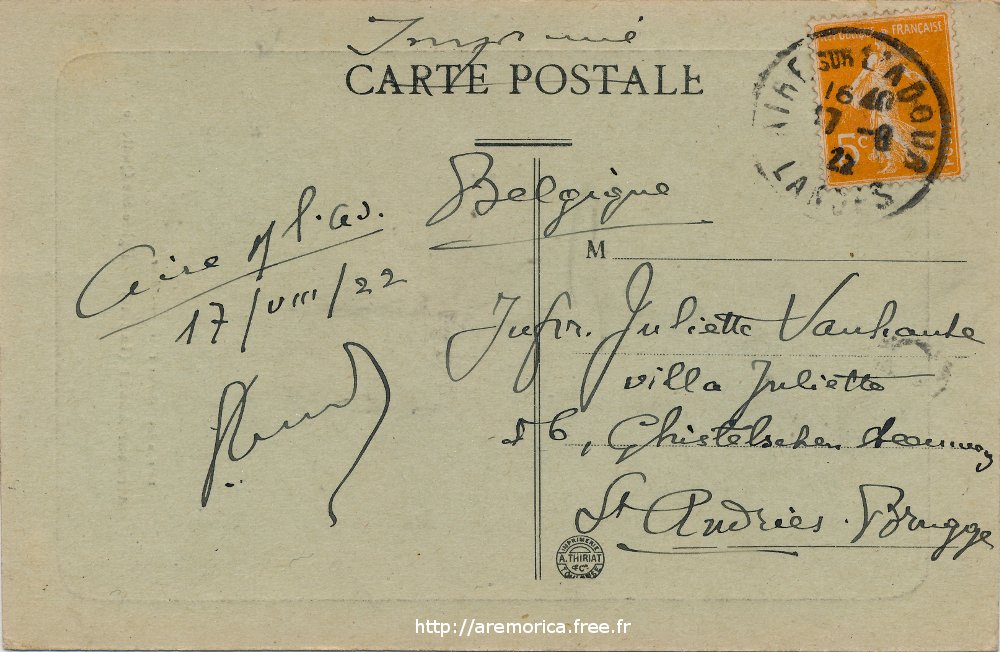 Imprimé
CARTE POSTALE
RÉPUBLIQUE FRANÇAISE
5c
AIRE SUR L'ADOUR
16 40
17 -8
22
LANDES
Belgique
Aire s/ l'Ad.
17/VIII/22
M
Jufr. Juliette Vanhaute
villa Juliette
56, Ghistelschen steenweg
St Andries. Brugge
IMPRIMERIE
A. THIRIAT
& Cie
TOULOUSE
http://aremorica.free.fr